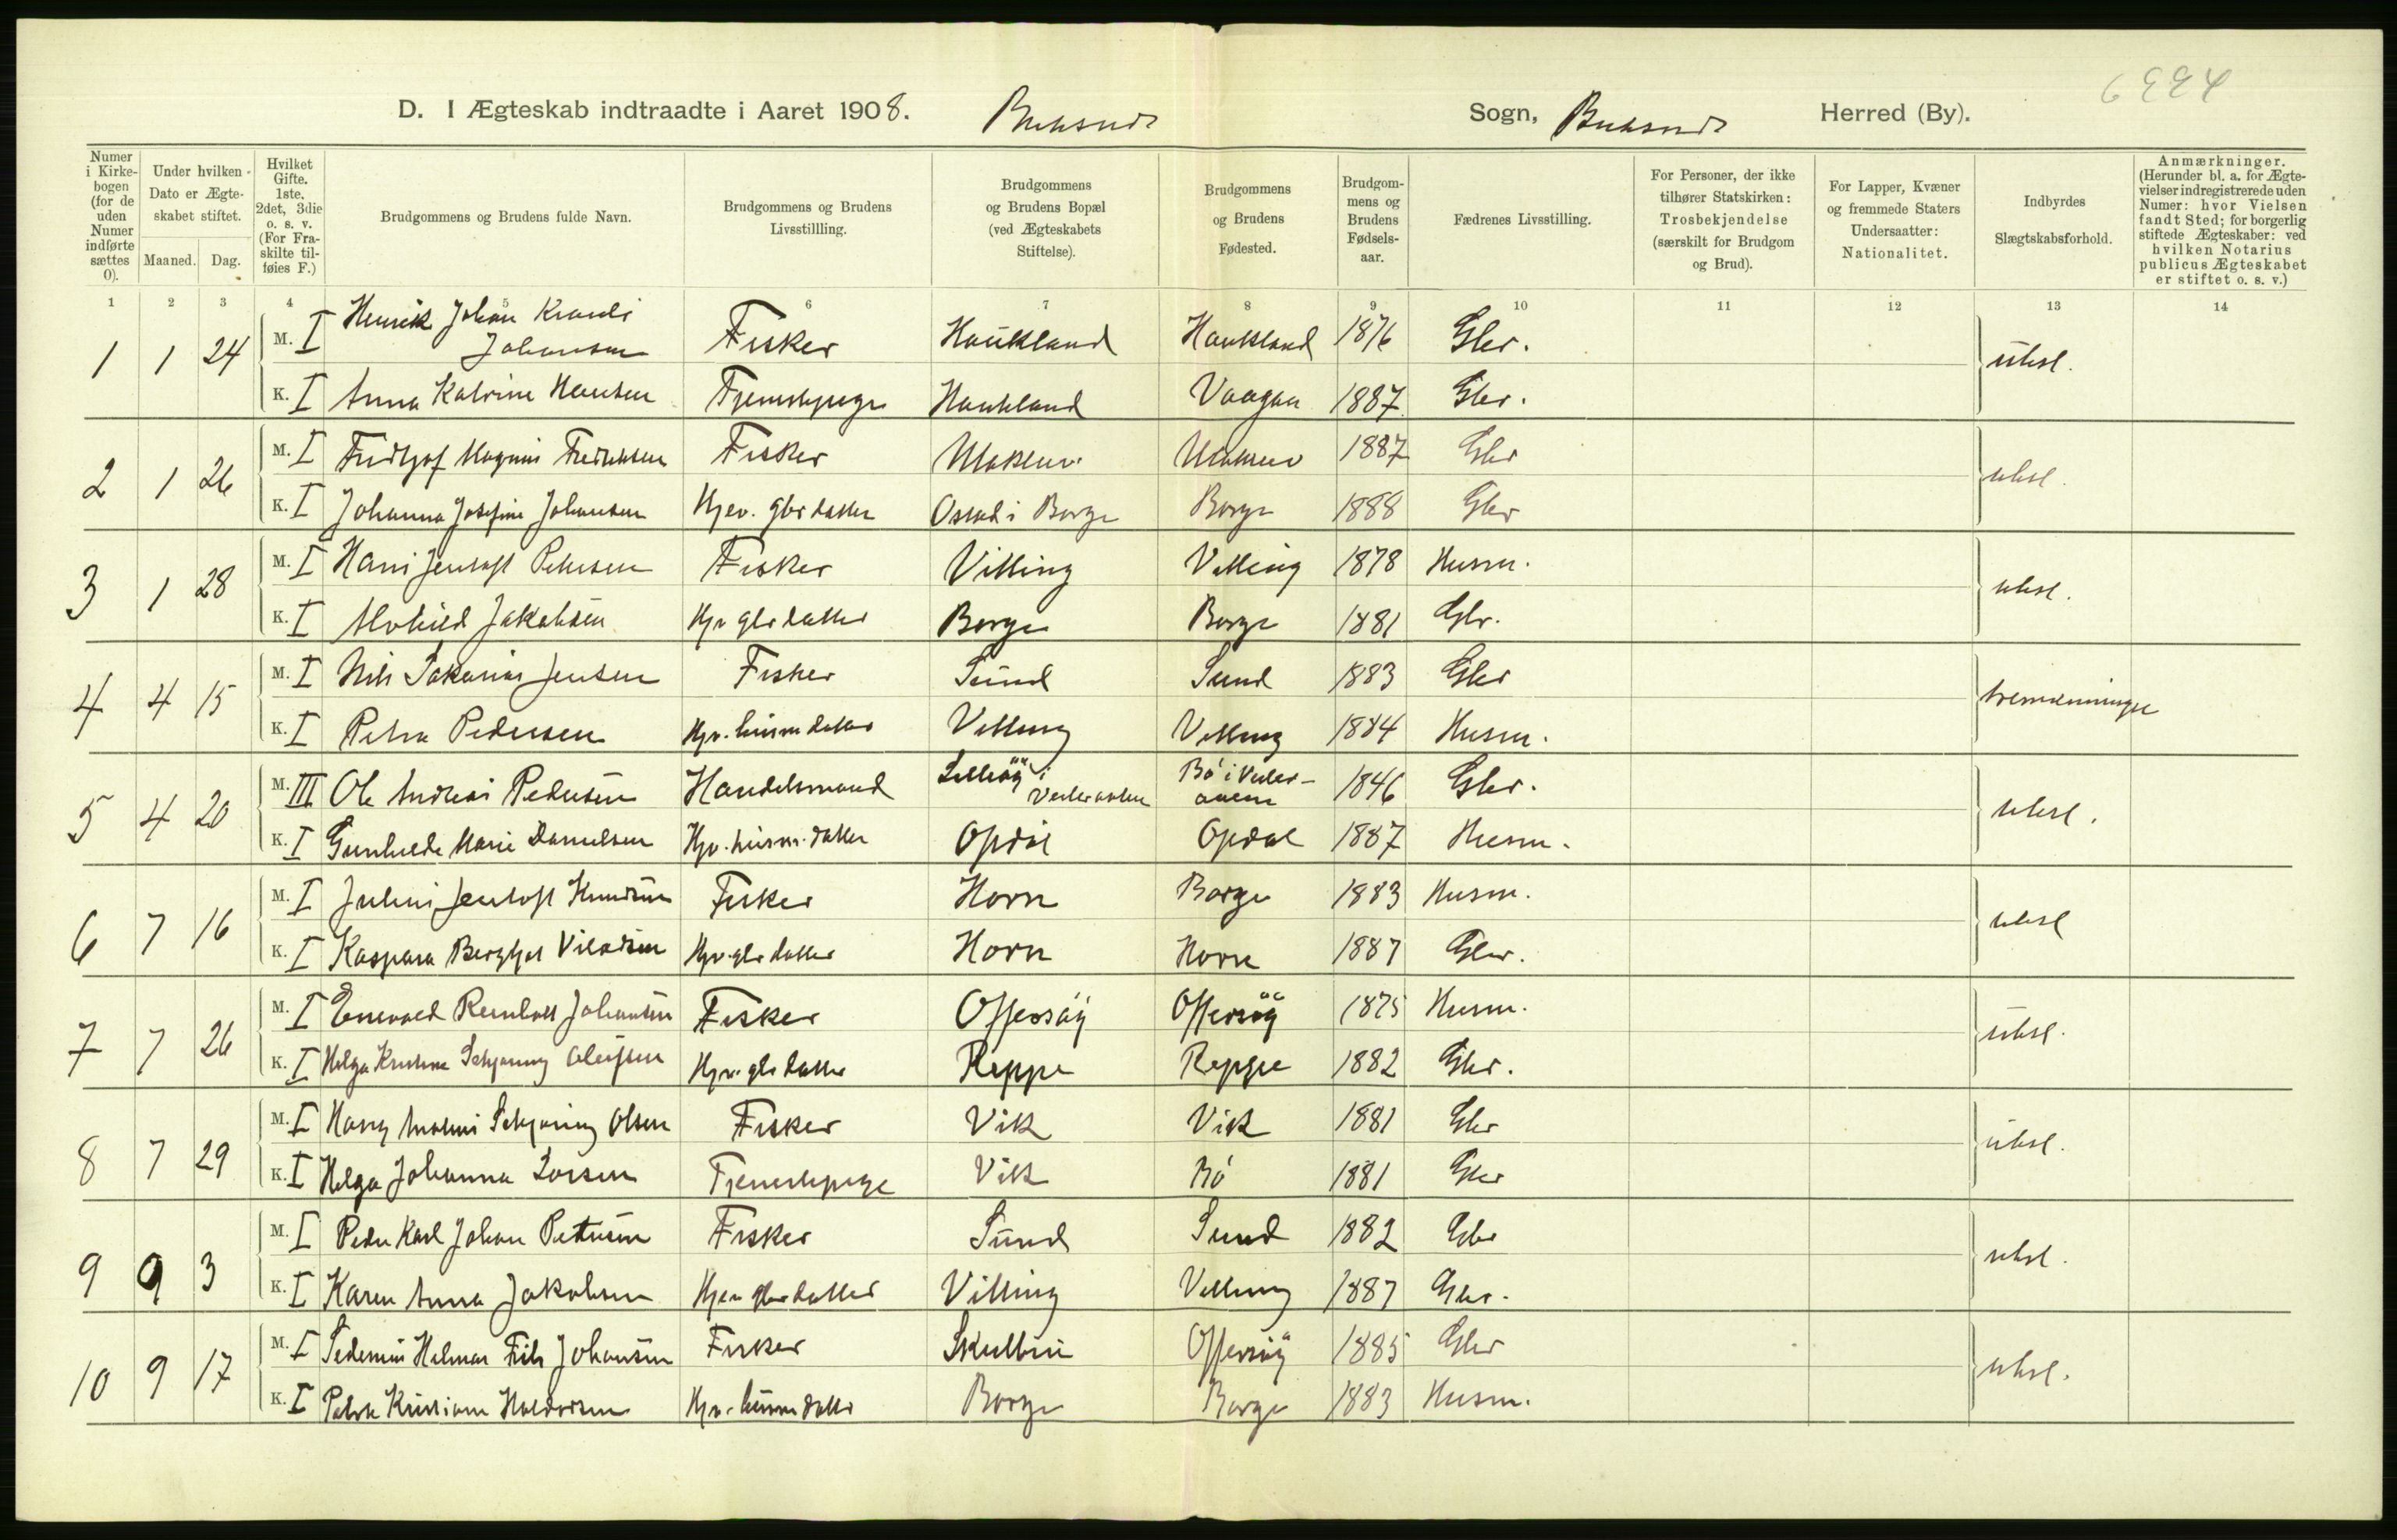 6994
D. I Ægteskab indtraadte i Aaret 1908. Buksnes Sogn, Buksnes Herred (By).
Numer i Kirkebogen (for de uden Numer indførte sættes 0).
Under hvilken Dato er Ægteskabet stiftet.
Maaned. Dag.
Hvilket Gifte. 1ste, 2det, 3die o. s. v. (For Fraskilte tilføies F.)
Brudgommens og Brudens fulde Navn.
Brudgommens og Brudens Livsstillling.
Brudgommens og Brudens Bopæl (ved Ægteskabets Stiftelse).
Brudgommens og Brudens Fødested.
Brudgommens og Brudens Fødselsaar.
Fædrenes Livsstilling.
For Personer, der ikke tilhører Statskirken: Trosbekjendelse (særskilt for Brudgom og Brud).
For Lapper, Kvæner og fremmede Staters Undersaatter: Nationalitet.
Indbyrdes Slægtskabsforhold.
Anmærkninger. (Herunder bl. a. for Ægtevielser indregistrerede uden Numer: hvor Vielsen fandt Sted; for borgerlig stiftede Ægteskaber: ved hvilken Notarius publicus Ægteskabet er stiftet o. s. v.)
1 2 3 4 5 6 7 8 9 10 11 12 13 14
1 1 24 M. I Henrik Johan Johansen Fisker Haukland Haukland 1876 Gbr. ubesl.
K. I Anna Katrine Hansen Tjenestepige Haukland Vaagan 1887 Gbr.
2 1 26 M. I Fridtjof Magnus Fredriksen Fisker 1887 Gbr ubesl.
K. I Johanna Josefine Johansen Hjev. gbr datter i Borge Borge 1888 Gbr
3 1 28 M. I Hans Jentoft Petersen Fisker Valling 1878 Husm. ubesl.
K. I Alvhild Jakobsen Hjv gbr datter Borge Borge 1881 Gbr.
4 4 15 M. I Nils Sakarias Jensen Fisker Sund Sund 1883 Gbr tremænninger
K. I Petra Pedersen Hjv. husm datter 1884 Husm.
5 4 20 M. III Ole Andreas Pedersen Handelsmand i Vesteraalen Bö i Vesteraalen 1846 Gbr. ubesl.
K. I Gunhilde Marie Danielsen Hjv. husm. datter Opdal Opdal 1887 Husm.
6 7 16 M. I Julius Jentoft Knudsen Fisker Horn Borge 1883 Husm. ubesl
K. I Kaspara Bergitte Hjv. gbr datter Horn Horn 1887 Gbr.
7 7 26 M. I Reinholt Johansen Fisker Offersöy Offersöy 1875 Husm. ubesl.
K. I Helga Kristine Schjönning Olufsen Hjv. gbr datter Reppe Reppe 1882 Gbr.
8 7 29 M. I Schjöning Olsen Fisker Vik Vik 1881 Gbr ubesl.
K. I Helga Johanna Larsen Tjenestepige Vik Bö 1881 Gbr
9 9 3 M. I Peder Karl Johan Pettersen Fisker Sund Sund 1882 Gbr ubesl.
K. I Karen Anna Jakobsen Hjev gbr datter 1887 Gbr.
10 9 17 M. I Hilmar Friis Johansen Fisker Skulbru Offersöy 1885 Gbr ubesl.
K. I Petra Kristiane Haldorsen Hjv. husm datter Borge Borge 1883 Husm.